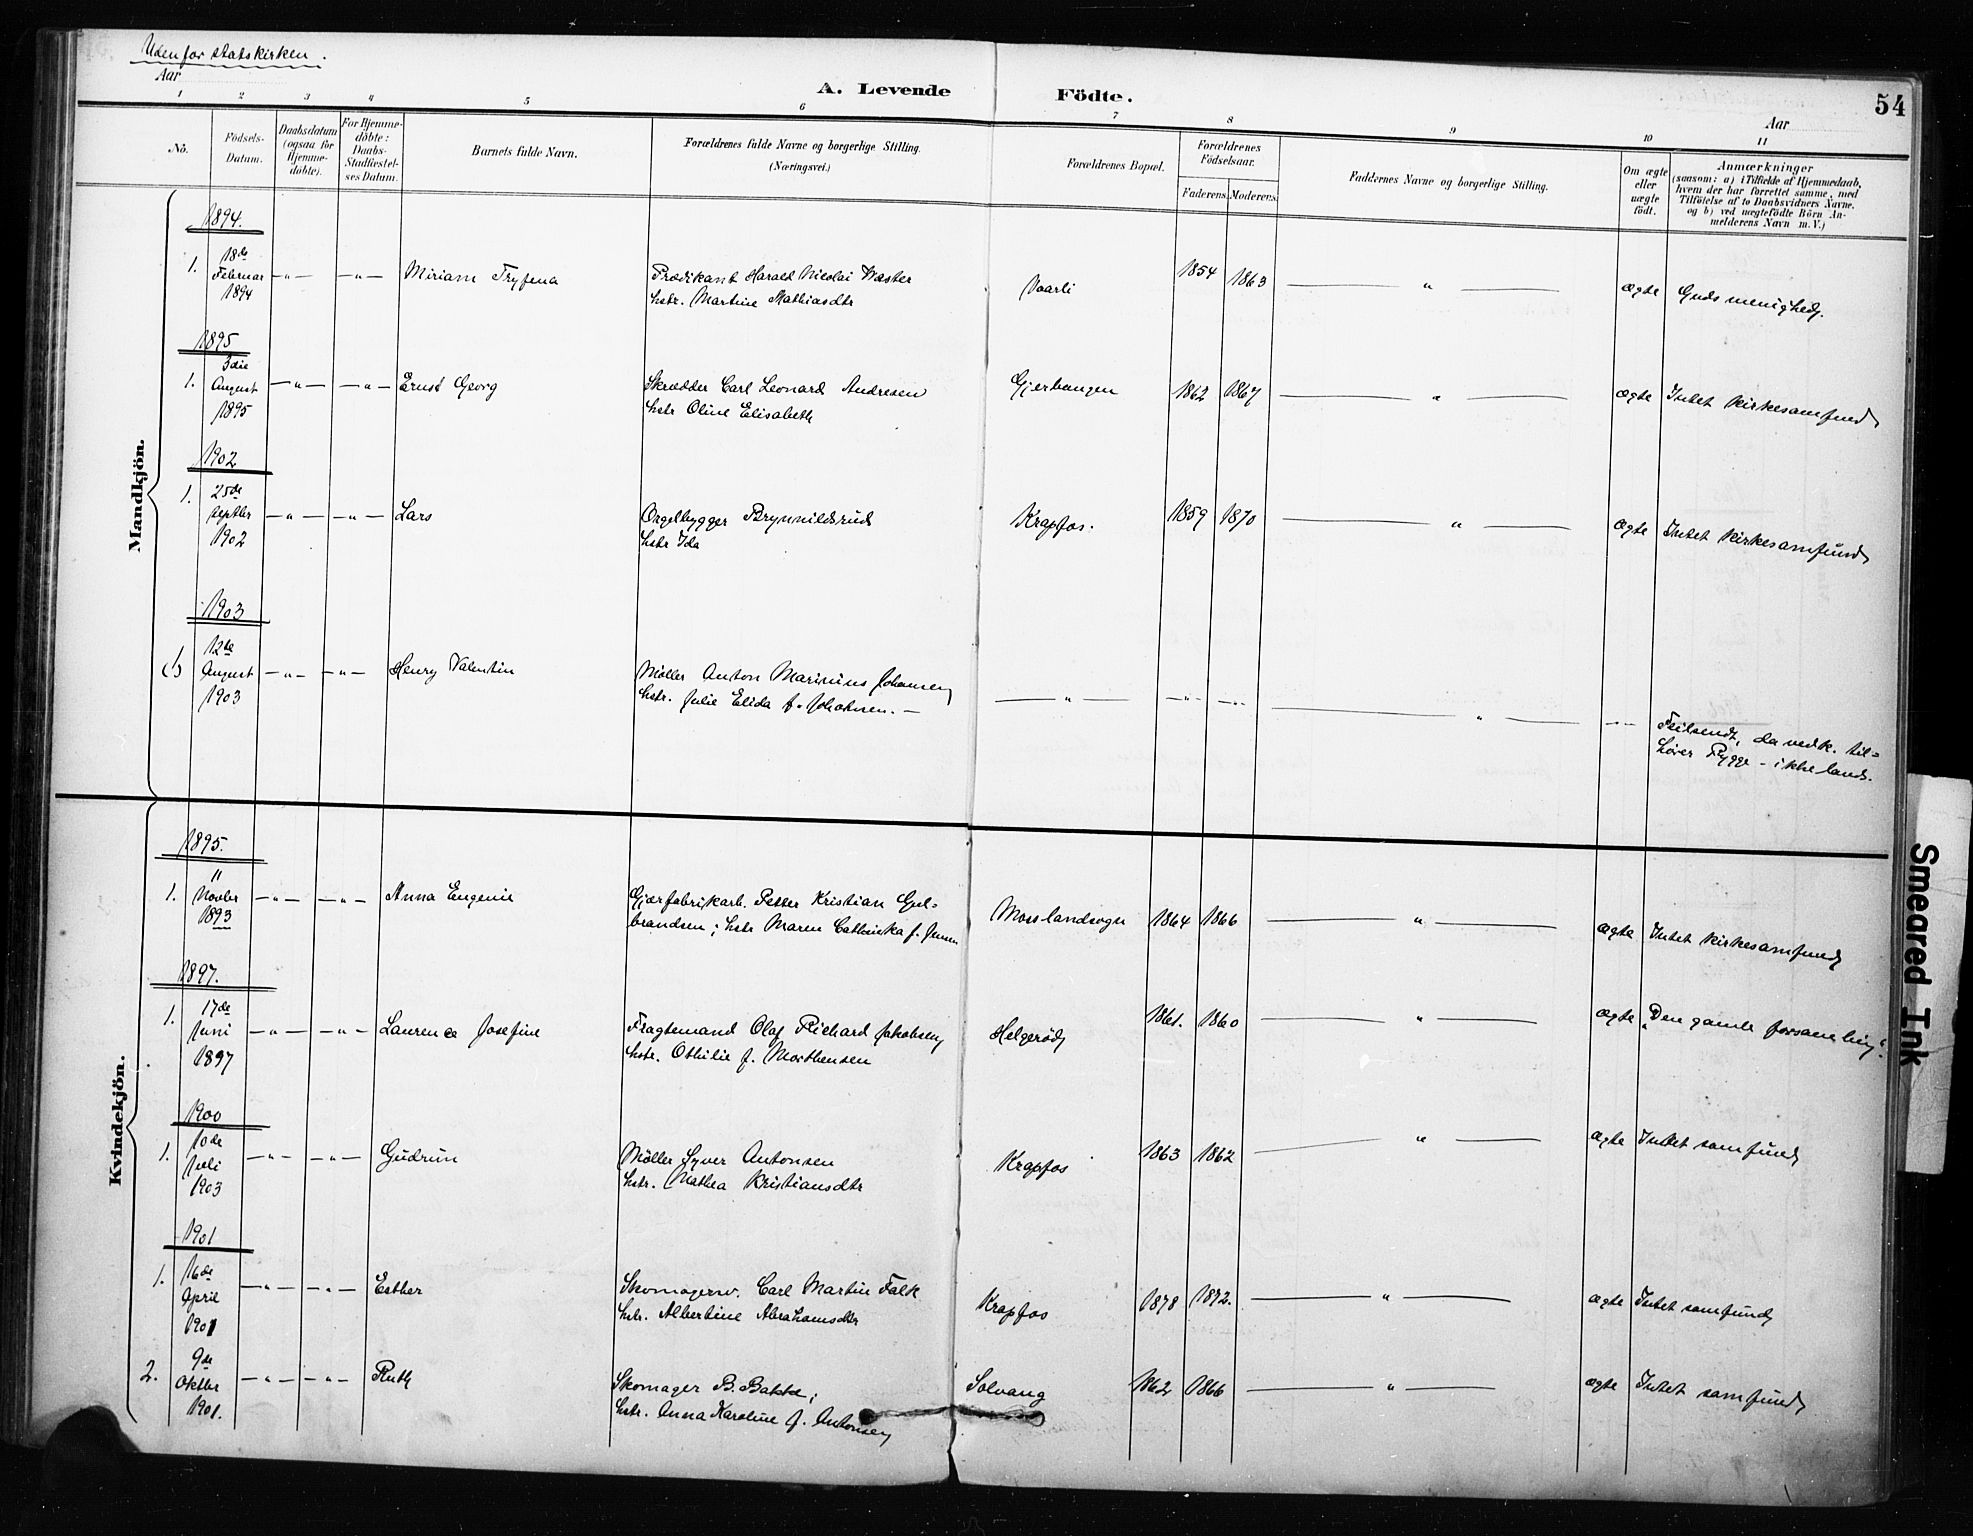 Udenfor statskirken.
Aar
A. Levende Födte.
54
Aar
1 2 3 4 5 6 7 8 9 10 11
No.
Födsels-Datum.
Daabsdatum (ogsaa for Hjemme-döbte).
For Hjemme-döbte: Daabs-Stadfæstel-ses Datum.
Barnets fulde Navn.
Forældrenes fulde Navne og borgerlige Stilling.
(Næringsvei.)
Forældrenes Bopæl.
Forældrenes Födselsaar.
Faderens. Moderens.
Faddernes Navne og borgerlige Stilling.
Om ægte eller uægte födt.
Anmærkninger
(saasom: a) i Tilfælde af Hjemmedaab,
hvem der har forrettet samme, med
Tilföielse af to Daabsvidners Navne.
og b) ved uægtefödte Börn An-
melderens Navn m. V.)
Mandkjön.
1894.
1. 18de Februar 1894 — " — — " — Miriam Tryfena
Prædikant Harald Nicolai Wæster
hstr. Martine Mathiasdtr
Vaarli 1854 1863 — " — ægte Guds menighed.
1895
1. 3die August 1895 — " — — " — Ernst Georg
Skrædder Carl Leonard Andresen
hstr Oline Elisabeth
1862 1867 — " — ægte Intet kirkesamfund
1902
1. 25de septbr 1902 — " — — " — Lars
Orgelbygger Brynnildsrud
hstr Ida
Krapfos. 1859 1870 — " — ægte Intet kirkesamfund
1903
(1) 12te August 1903 — " — — " — Henry Valentin
Møller Anton Marinius Johansen
hstr. Julie Elida f. Johansen. —
— " — — " — — " — — " — — " —
Feilsendt, da vedk. til-
hører Rygge - ikke lands.
Kvindekjön.
1895.
1. 11 Novbr 1893 — " — — " — Anna Eugenie
Gjærfabrikarb. Petter Kristian Gul-
brandsen; hstr Maren Cathinka f. Jensen
Moss landsogn 1864 1866 — " — ægte Intet kirkesamfund
1897.
1. 17de Juni 1897 — " — — " — Laurence Josefine
Fragtemand Olaf Richard Jakobsen
hstr. Othilie f. Morthensen
Helgerød 1861. 1860 — " — ægte "Den gamle forsamling".
1900
1. 10de Juli 1903 — " — — " — Gudrun
Møller Syver Antonsen
hstr. Mathea Kristiansdtr
Krapfos 1863 1862 — " — ægte Intet samfund
1901
1. 16de April 1901 — " — — " — Esther
Skomagersv. Carl Martin Falk
hstr. Albertine Abrahamsdtr
Krapfos 1878 1872. — " — ægte Intet samfund
2. 9de Oktbr 1901. — " — — " — Ruth
Skomager B. Bakke;
hstr. Anna Karoline f. Antonsen
Solvang 1862 1866 — " — ægte Intet samfund
Smeared Ink